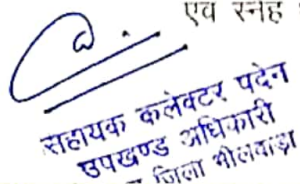 एव स्नेह
सहायक कलेक्टर पदेन
उपखण्ड अधिकारी
जिला भीलवाड़ा